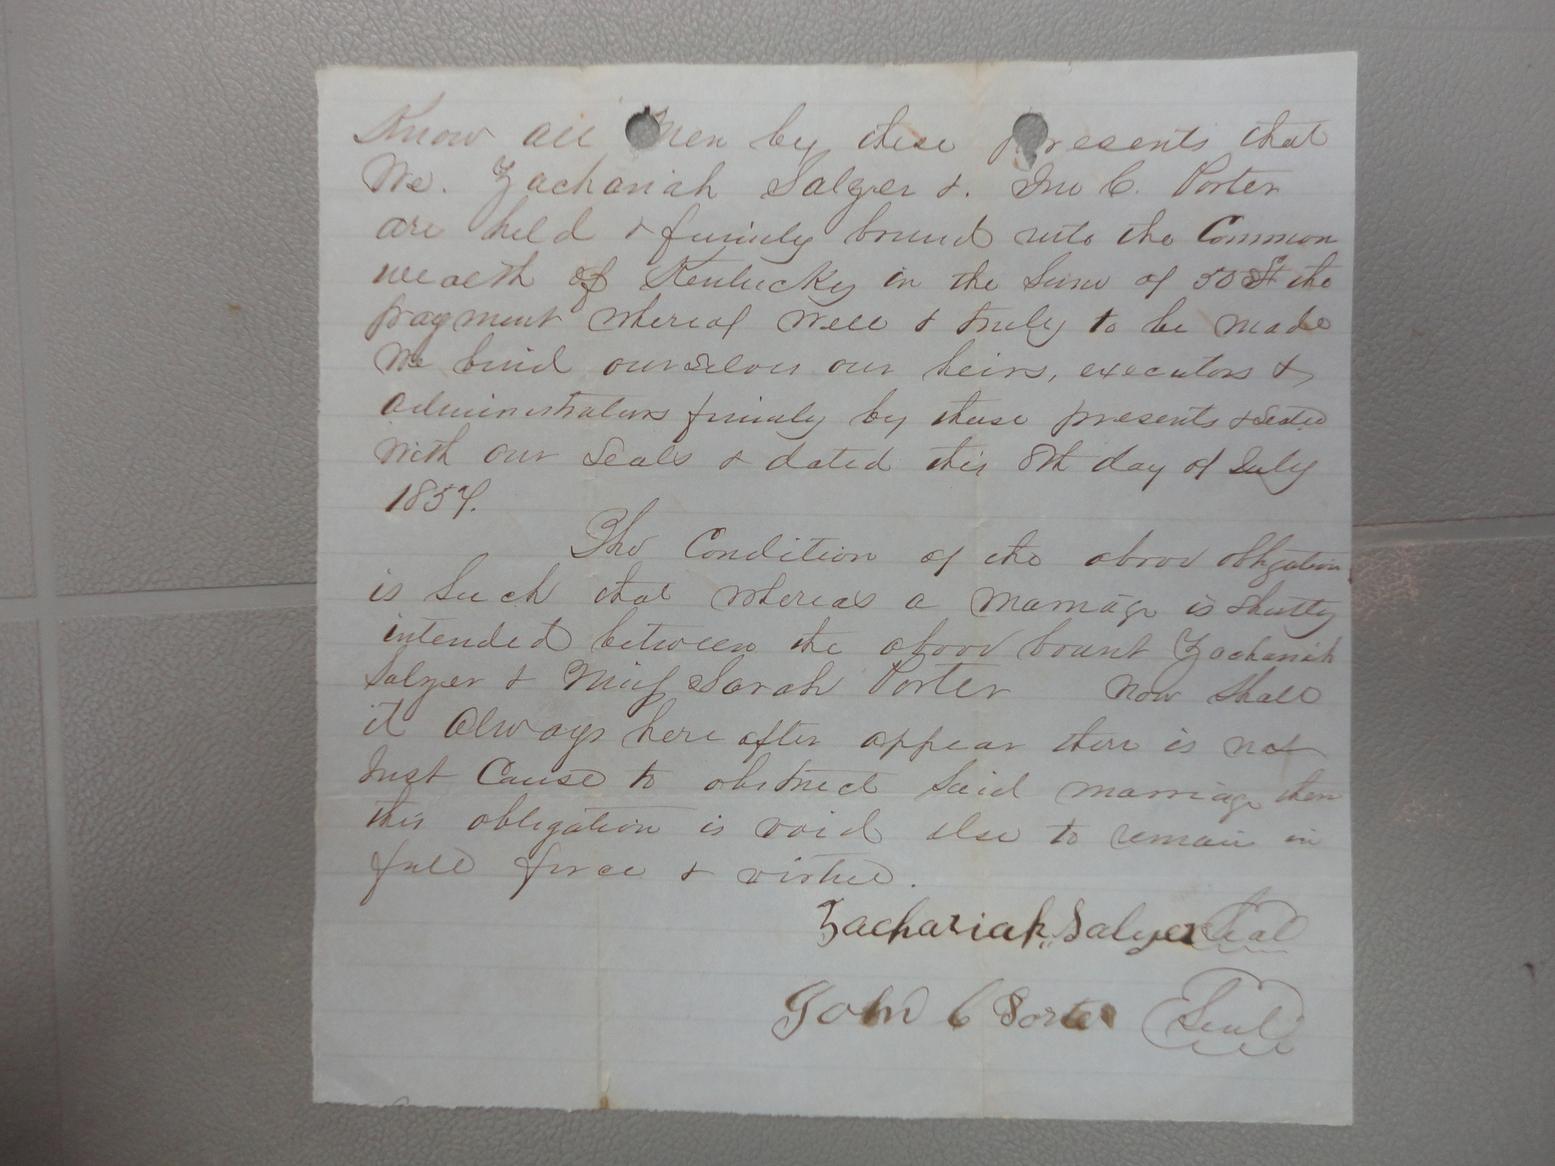 Know all men by these presents that
We. Zachariah Salyer &. Jno C. Porter
are held & firmly bound unto the Common
wealth of Kentucky in the Sum of 50$ the
payment whereof Well & truly to be made
We bind ourselves our heirs, executors &
administrators firmly by these presents & Sealed
with our Seals & dated this 8th day of July
1857.
The Condition of the above obligation
is Such that whereas a marriage is Shortly
intended between the above bound Zachariah
Salyer & Miss Sarah Porter Now Shall
it always here after appear there is not
Just Cause to obstruct Said marriage then
this obligation is void else to remain in
full force & virtue.
Zachariah Salyer Seal
John C Porter Seal